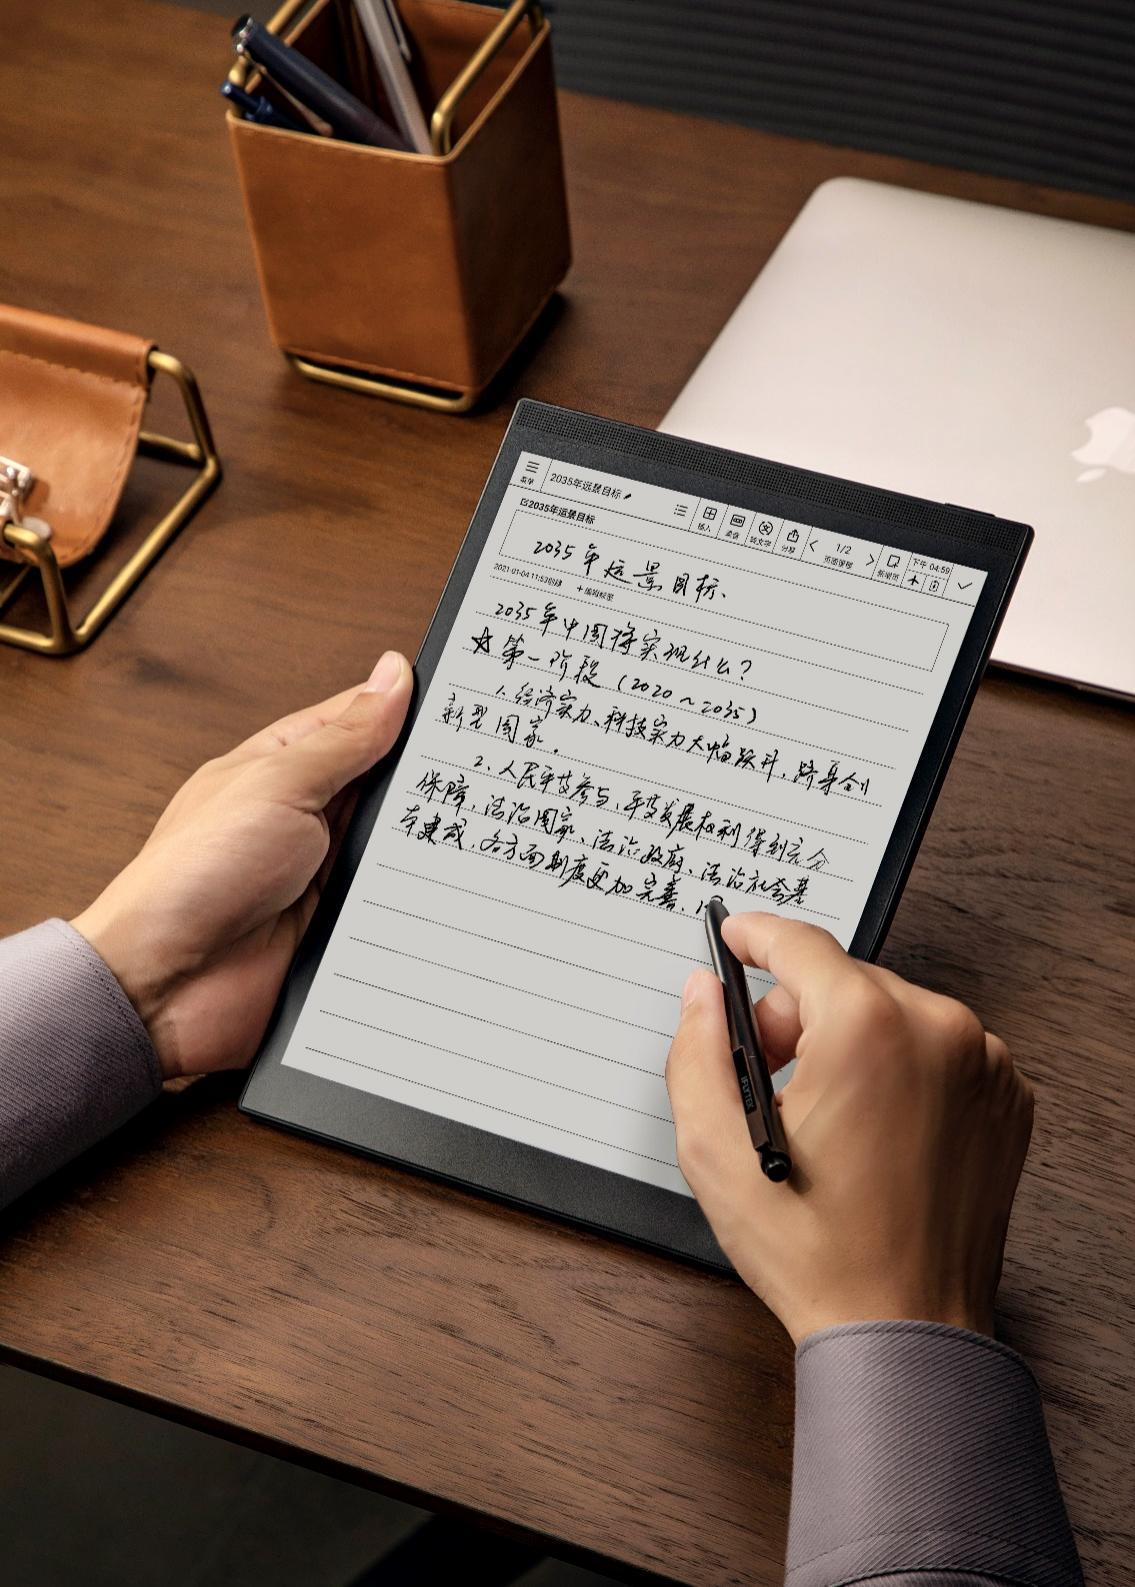 菜单 2035年远景目标 插入 录音 转文字 分享 1/2 页面管理 新增页 下午 04:59
2035年远景目标
2035年远景目标.
2021-01-04 11:53创建 +编辑标签
2035年中国将实现什么?
☆第一阶段(2020~2035)
1.经济实力、科技实力大幅跃升,跻身创
新型国家.
2.人民平等参与、平等发展权利得到充分
保障,法治国家、法治政府、法治社会基
本建成,各方面制度更加完善.
iFLYTEK